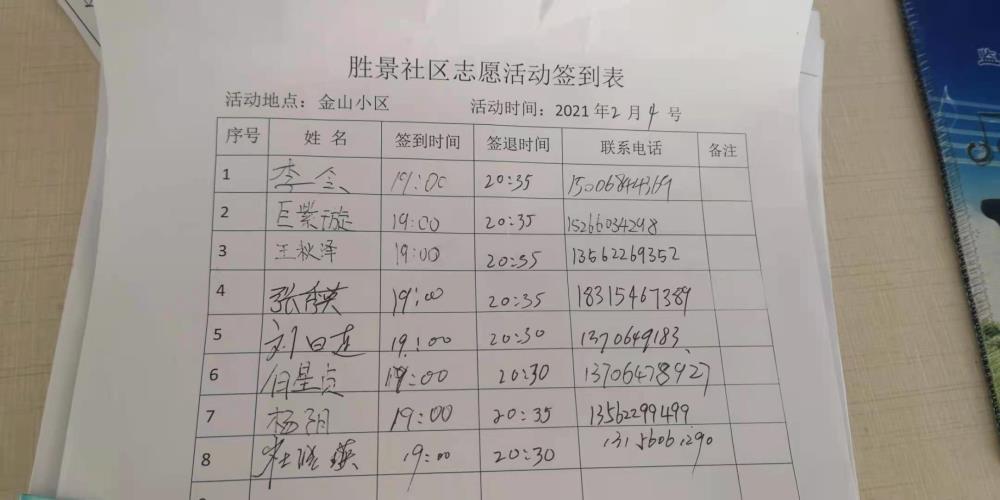 胜景社区志愿活动签到表
活动地点：金山小区 活动时间：2021年2月4号
序号 姓名 签到时间 签退时间 联系电话 备注
1 李会 19:00 20:35 15006844369
2 巨紫璇 19:00 20:35 15266034298
3 王秋泽 19:00 20:35 13562269352
4 张 英 19:00 20:35 18315467389
5 刘 19:00 20:30 1370649183
6 19:00 20:30 13706478927
7 杨阴 19:00 20:35 13562299499
8 杜 19:00 20:30 13156061290